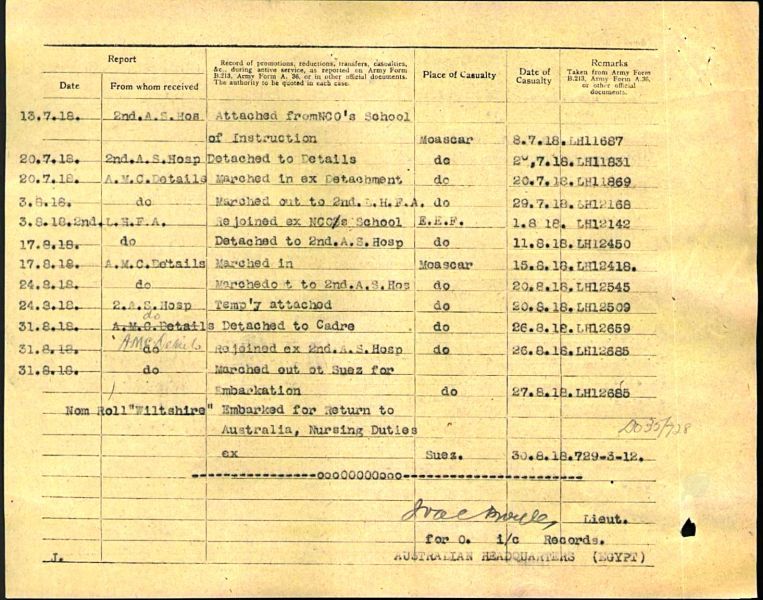 Report
Record of promotions, reductions, transfers, casualties, &c., during active service, as reported on Army Form B.213, Army Form A. 36, or in other official documents. The authority to be quoted in each case.
Place of Casualty
Date of Casualty
Remarks
Taken from Army Form B.213, Army Form A.36, or other official documents.
Date From whom received
13.7.18. 2nd.A.S.Hos Attached fromNCO's School
of Instruction Moascar 8.7.18.LH11687
20.7.18. 2nd.A.S.Hosp Detached to Details do 7.18.LH11831
20.7.18. A.M.C.Details Marched in ex Detachment do 20.7.18.LH11869
3.8.18. do Marched out to 2nd.L.H.F.A. do 29.7.18.LH12168
3.8.18.2nd.L.H.F.A. Rejoined ex NCO's School E.E.F. 1.8 18. LH12142
17.8.18. do Detached to 2nd.A.S.Hosp do 11.8.18.LH12450
17.8.18. A.M.C.Details Marched in Moascar 15.8.18.LH12418.
24.8.18. do Marchedo t to 2nd.A.S.Hos do 20.8.18.LH12545
24.8.18. 2.A.S.Hosp Temp'y attached do 20.8.18.LH12509
do
31.8.18. A.M.C.Details Detached to Cadre do 26.8.18.LH12659
AMC Details
31.8.18. do Rejoined ex 2nd.A.S.Hosp do 26.8.18.LH12685
31.8.18. do Marched out ot Suez for
Embarkation do 27.8.18.LH12685
Nom Roll"Wiltshire" Embarked for Return to
Australia, Nursing Duties
DO35/728
ex Suez. 30.8.18.729-3-12.
------------------oooOOOOOooo--------------------------
Lieut.
for O. i/c Records.
J. AUSTRALIAN HEADQUARTERS (EGYPT)